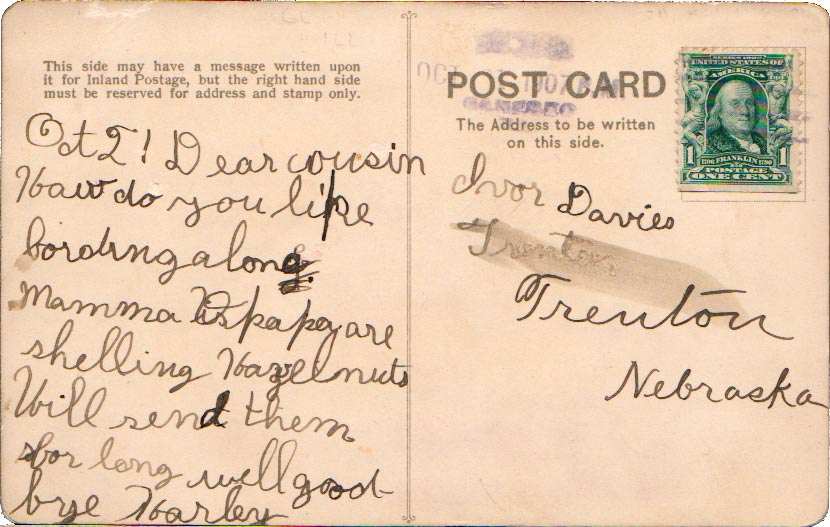 This side may have a message written upon
it for Inland Postage, but the right hand side
must be reserved for address and stamp only.
Oct 2! Dear cousin
Haw do you like
bording along.
Mamma & papa are
shelling Hazelnuts
Will send them
for long well good-
bye Harley
OCT 1907
POST CARD
GENESEO
The Address to be written
on this side.
SERIES 1902
UNITED STATES OF
AMERICA
1 1706 FRANKLIN 1790 1
POSTAGE
ONE CENT
Ivor Davies
Trenton
Trenton
Nebraska